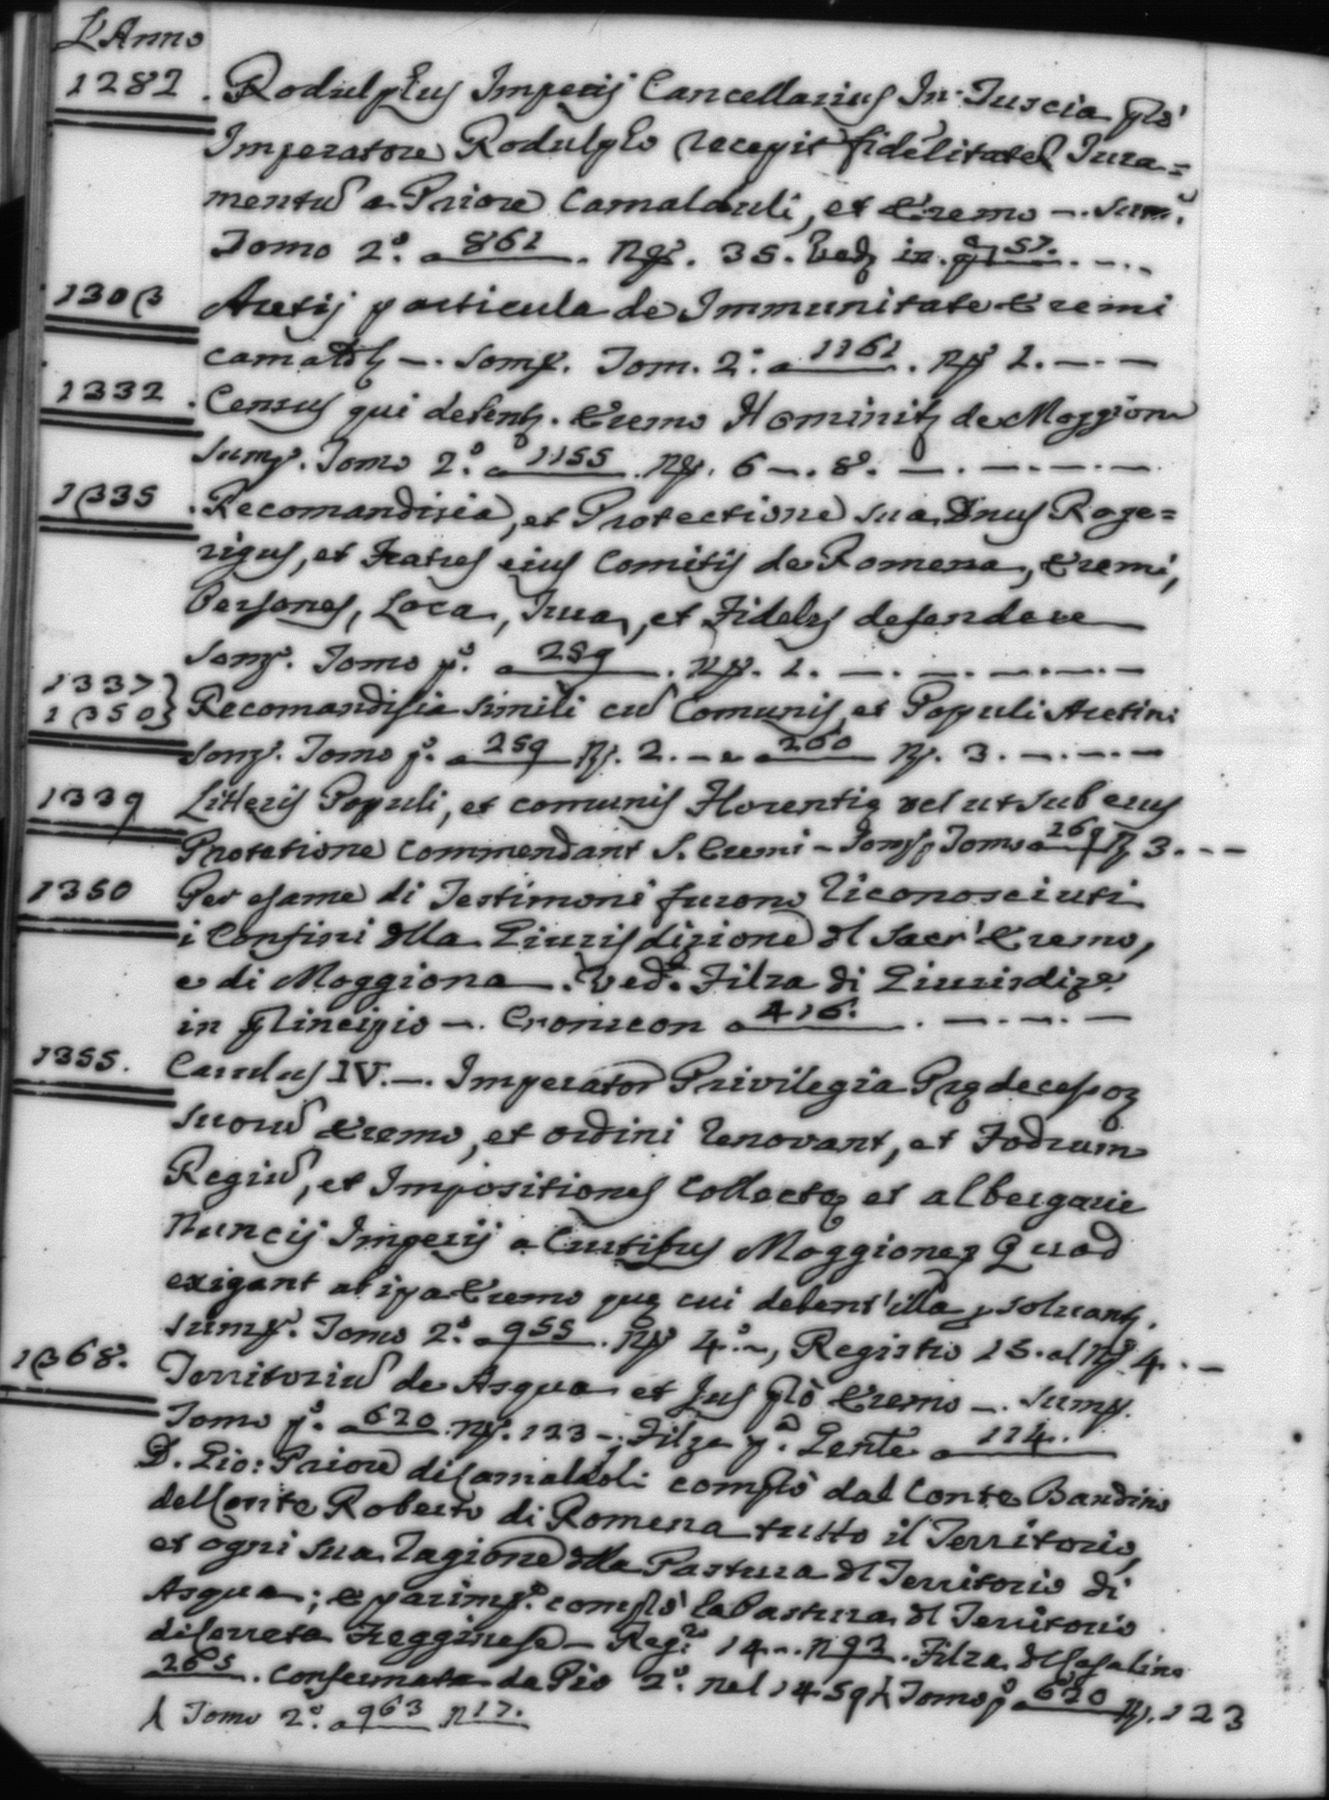 L'Anno
1282. Rodulphus Imperij Cancellarius In Tuscia pro
Imperatore Rodulpho recepit fidelitatis Jura=
mentu a Priore Camalduli, et Eremo —. Sum.
Tomo 2.° a 861. N. 35. Ved in 57. —.—.
1303 Aretij particula de Immunitate Eremi
Camald —. Som. Tom. 2.° a 1161. N 1. —.—
1332. Census qui debent. Eremo Hominib de Moggiona
Sum. Tomo 2.° a 1155. N. 6 —. 8. —.—.—.—.—
1335. Recomandisia, et Protectione sua Dnus Roge=
rigus, et Fratres eius Comitis de Romena, Eremi,
Persones, Loca, Jura, et Fideles defendere
Som. Tomo p.° a 259. N. 1. —.—.—.—.—.—
1337 }
1350 } Recomandisia simili cu Comunis, et Populi Aretini
Som. Tomo p.° a 259 N. 2. — e a 260 N. 3. —.—.—.—
1339 Litteris Populi, et comunis Florentie velut sub eius
Protetione commendant S. Eremi — Som. Tomo a 269 N 3. —.—
1350 Per esame di Testimoni furono riconosciuti
i Confini dlla Giurisdizione dl Sacr' Eremo,
e di Moggiona. Ved.e Filza di Giurisdiz.e
in principio —. Cronicon a 416. —.—.—.—
1355. Carolus IV. —. Imperator Privilegia Predecessoz
suoru Eremo, et ordini renovant, et Fodrum
Regiu, et Impositiones Collecte et albergarie
Nuncij Imperij a Curtibus Moggiones Quod
exigant ab ipa Eremo que cui debent' illa psolvant.
Sum. Tomo 2.° a 955. N 4.° —, Registro 15. al N 4. —
1368. Territoriu de Asqua et Jus pro Eremo —. Sum.
Tomo p.° a 620 N. 123 —; Filza p.a Gente a 114.
D. Gio: Priore di Camaldoli comprò dal Conte Bandino
del Conte Roberto di Romena tutto il Territorio,
et ogni sua ragione dlla Pastura dl Territorio di
Asqua; e parim.e comprò la Pastura dl Territorio
di Cerreta Fegginese — Reg. 14 —. N 93. Filza dl Casalino
265. Confermata da Pio 2.° nel 1459 Tomo p.° a 620 N. 123
Tomo 2.° a 963 N 17.